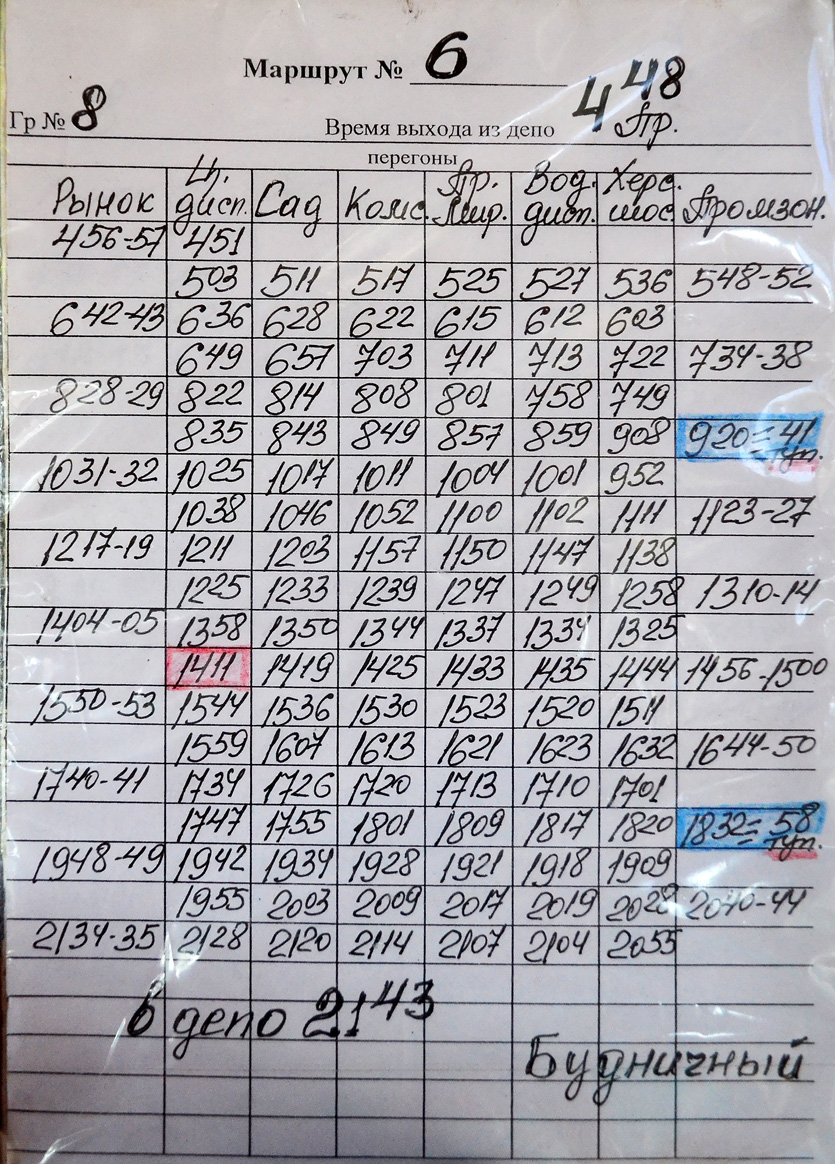 Маршрут № 6
Гр № 8 Время выхода из депо 4 48 Пр.
перегоны
Рынок Ц. дисп. Сад Комс. Пр. Мир. Вод. дисп. Херс. шос. Промзон.
456-57 451
503 511 517 525 527 536 548-52
642-43 636 628 622 615 612 603
649 657 703 711 713 722 734-38
828-29 822 814 808 801 758 749
835 843 849 857 859 908 920=41 туп.
1031-32 1025 1017 1011 1004 1001 952
1038 1046 1052 1100 1102 1111 1123-27
1217-19 1211 1203 1157 1150 1147 1138
1225 1233 1239 1247 1249 1258 1310-14
1404-05 1358 1350 1344 1337 1334 1325
1411 1419 1425 1433 1435 1444 1456-1500
1550-53 1544 1536 1530 1523 1520 1511
1559 1607 1613 1621 1623 1632 1644-50
1740-41 1734 1726 1720 1713 1710 1701
1747 1755 1801 1809 1817 1820 1832=58 туп.
1948-49 1942 1934 1928 1921 1918 1909
1955 2003 2009 2017 2019 2028 2040-44
2134-35 2128 2120 2114 2107 2104 2055
в депо 21 43
Будничный